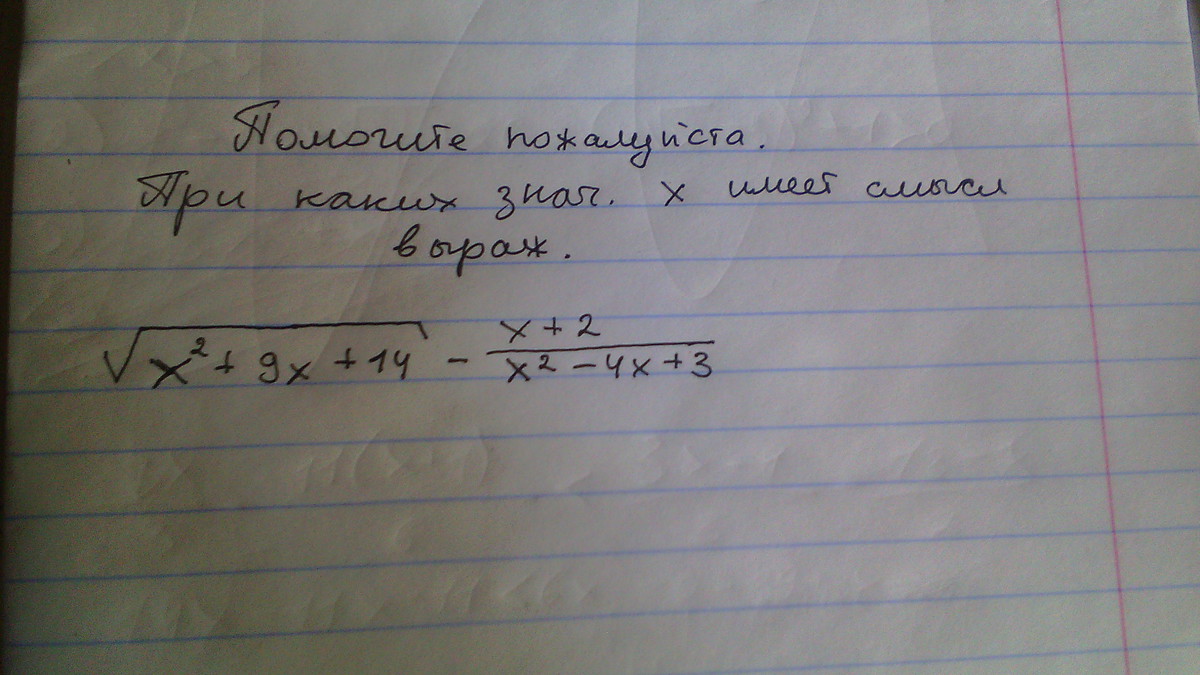 Помогите пожалуйста.
При каких знач. х имеет смысл
выраж.
√(x² + 9x + 14) - (x + 2)/(x² - 4x + 3)